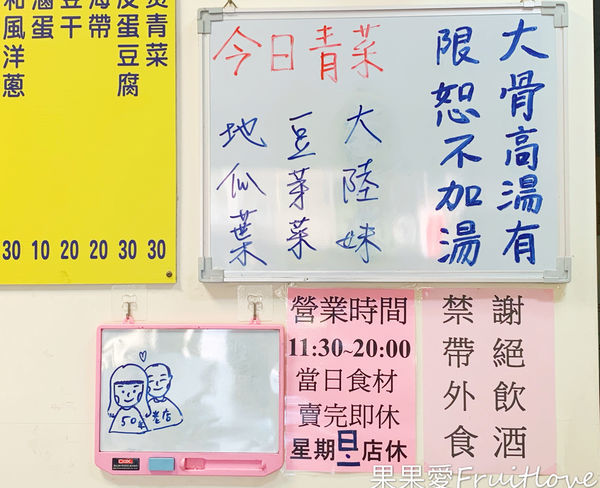 燙青菜 30
皮蛋豆腐 30
海帶 20
豆干 20
滷蛋 10
和風洋蔥 30
大骨高湯有
限恕不加湯
今日青菜
大陸妹
豆芽菜
地瓜葉
50年
老店
營業時間
11:30~20:00
當日食材
賣完即休
星期日、一店休
謝絕飲酒
禁帶外食
果果愛Fruitlove